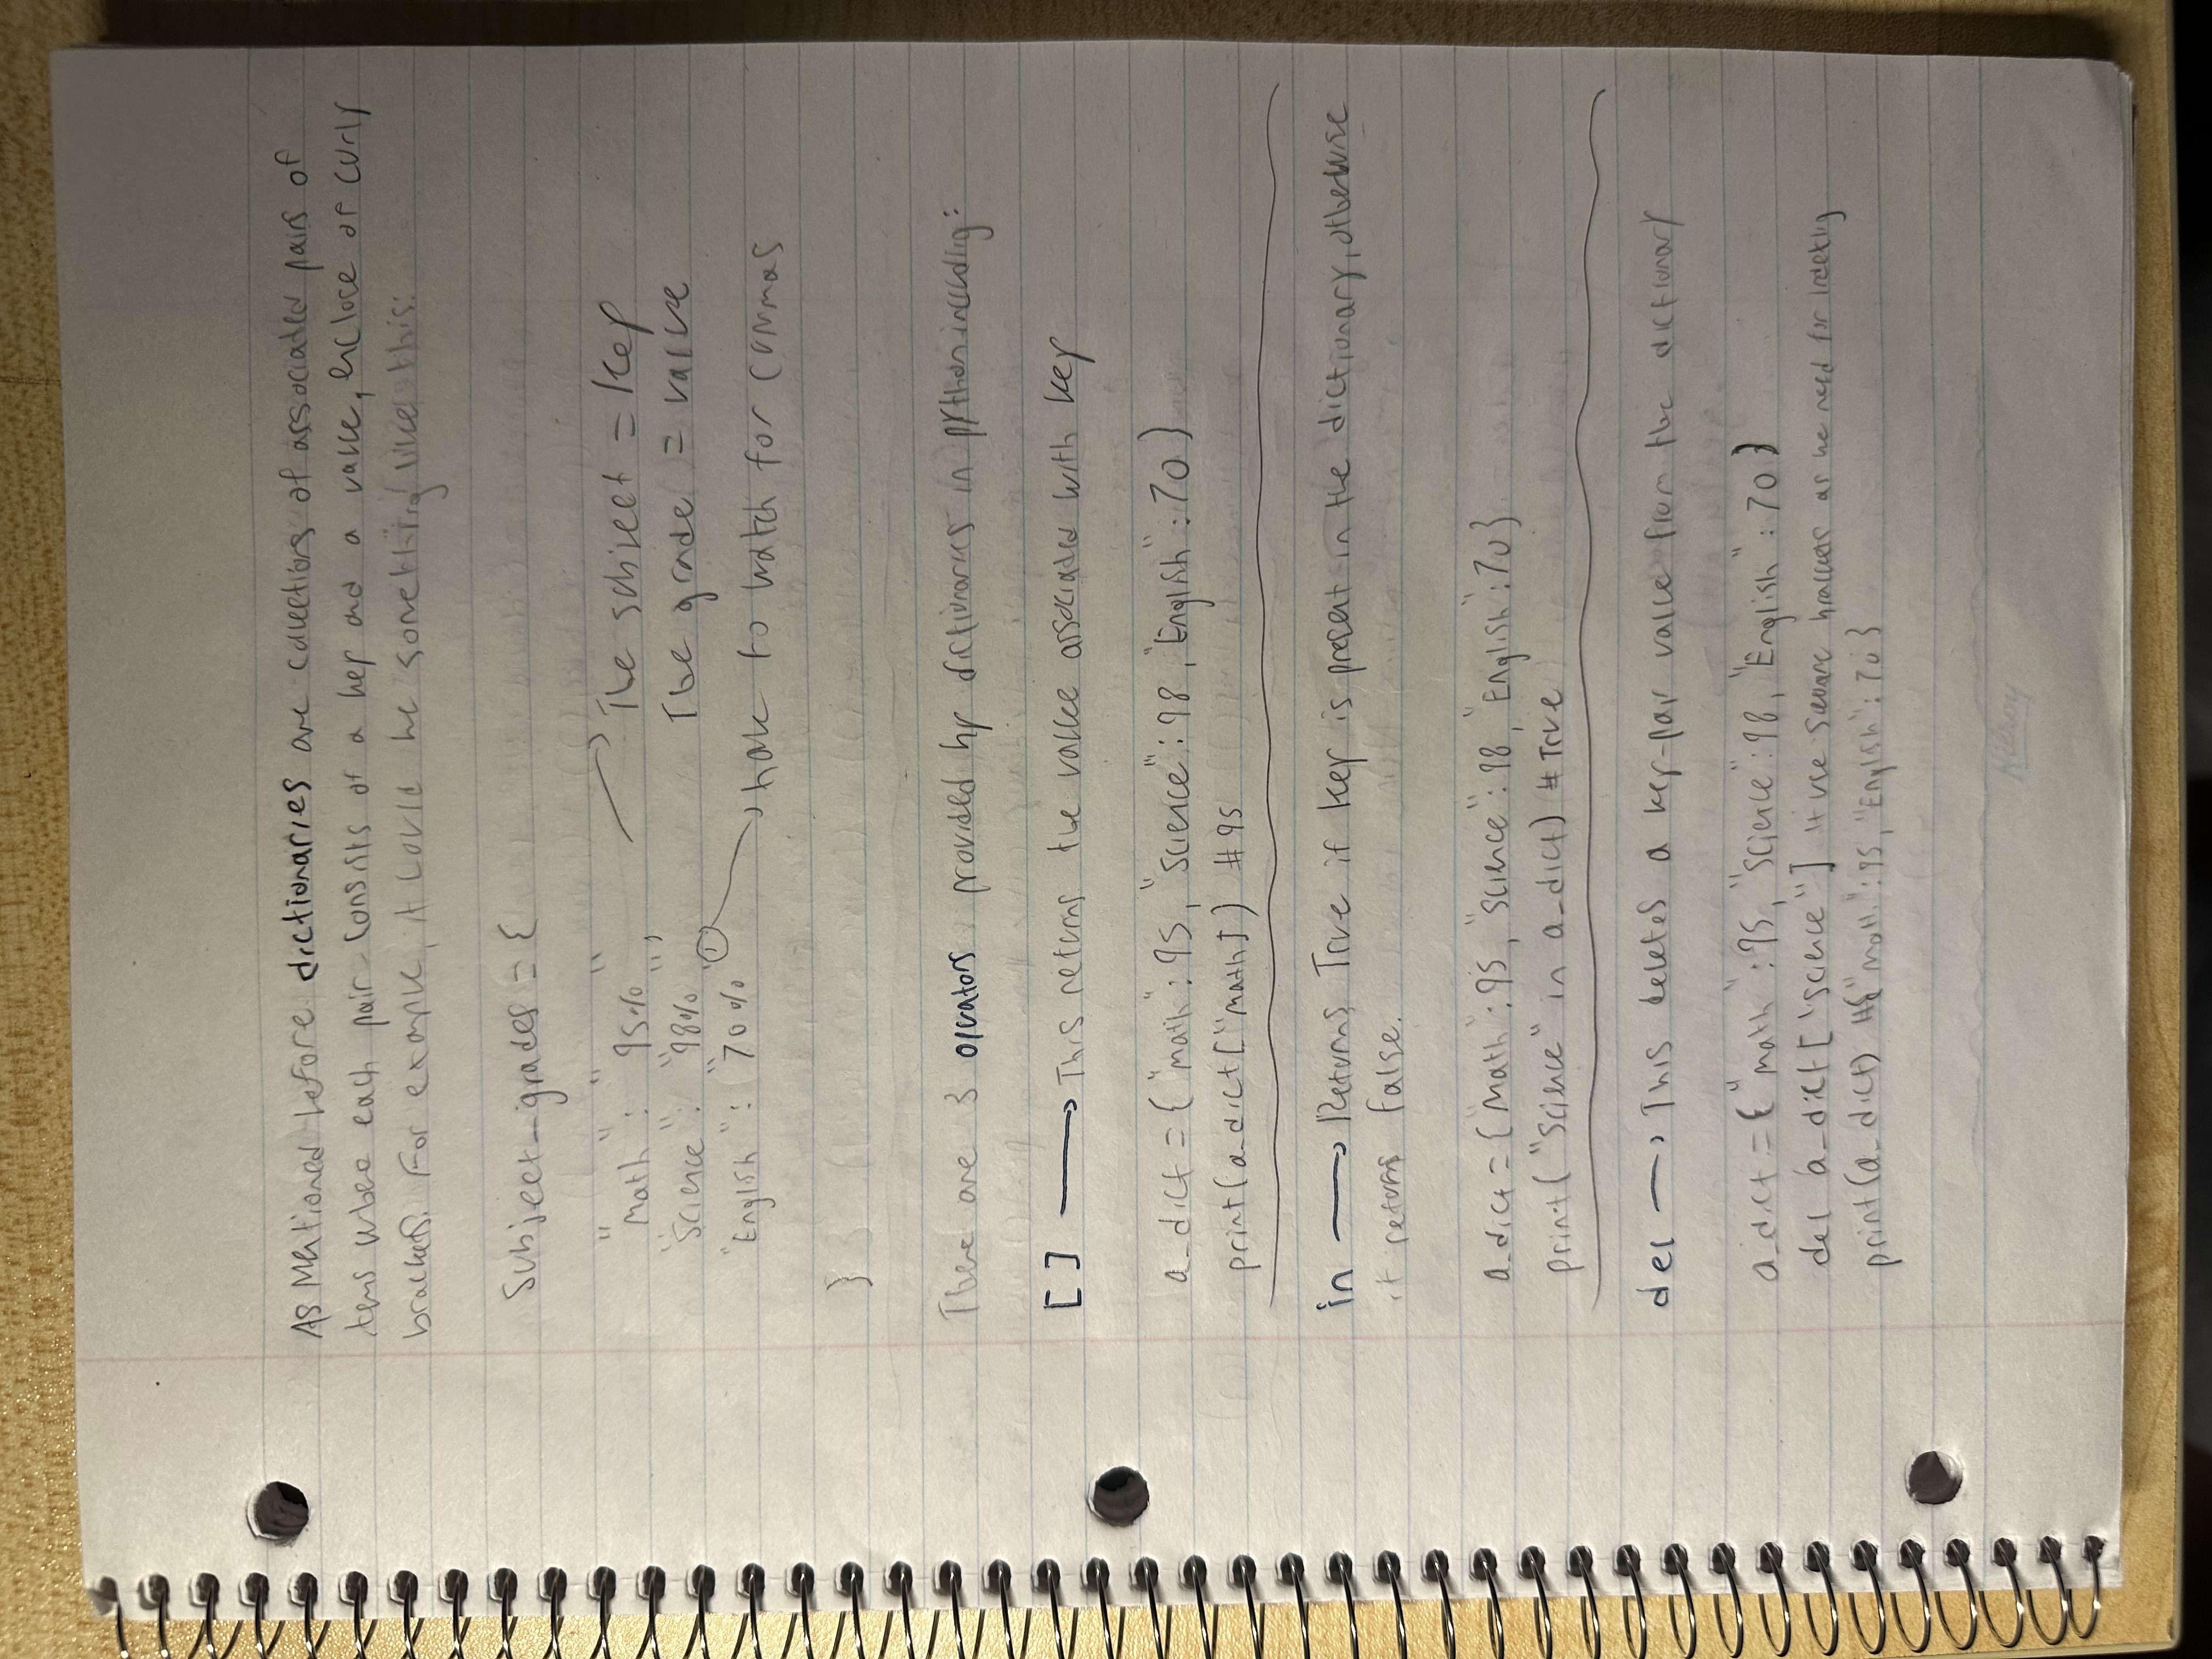 As Mentioned before dictionaries are collections of associated pairs of
items where each pair consists of a key and a value, enclose of curly
brackets. For example, it could be something like this:
Subject_grades = {
"Math" : "95%",
"Science" : "98%",
"English" : "70%"
The subject = key
The grade = value
have to watch for commas
}
There are 3 operators provided by dictionaries in python including:
[ ] → This returns the value associated with key
a_dict = { "math" : 95, "Science" : 98, "English" : 70 }
print(a_dict["math]) #95
in → Returns True if key is present in the dictionary, otherwise
it returns False.
a_dict = {"Math" : 95, "Science" : 98, "English" : 70}
print( "Science" in a_dict) # True
del → This deletes a key-pair value from the dictionary
a_dict = { "math" : 95, "Science" : 98, "English" : 70 }
del a_dict ["Science"] # use square brackets as we need for indexing
print(a_dict) #{"math" : 95, "English" : 70 }
Hilroy